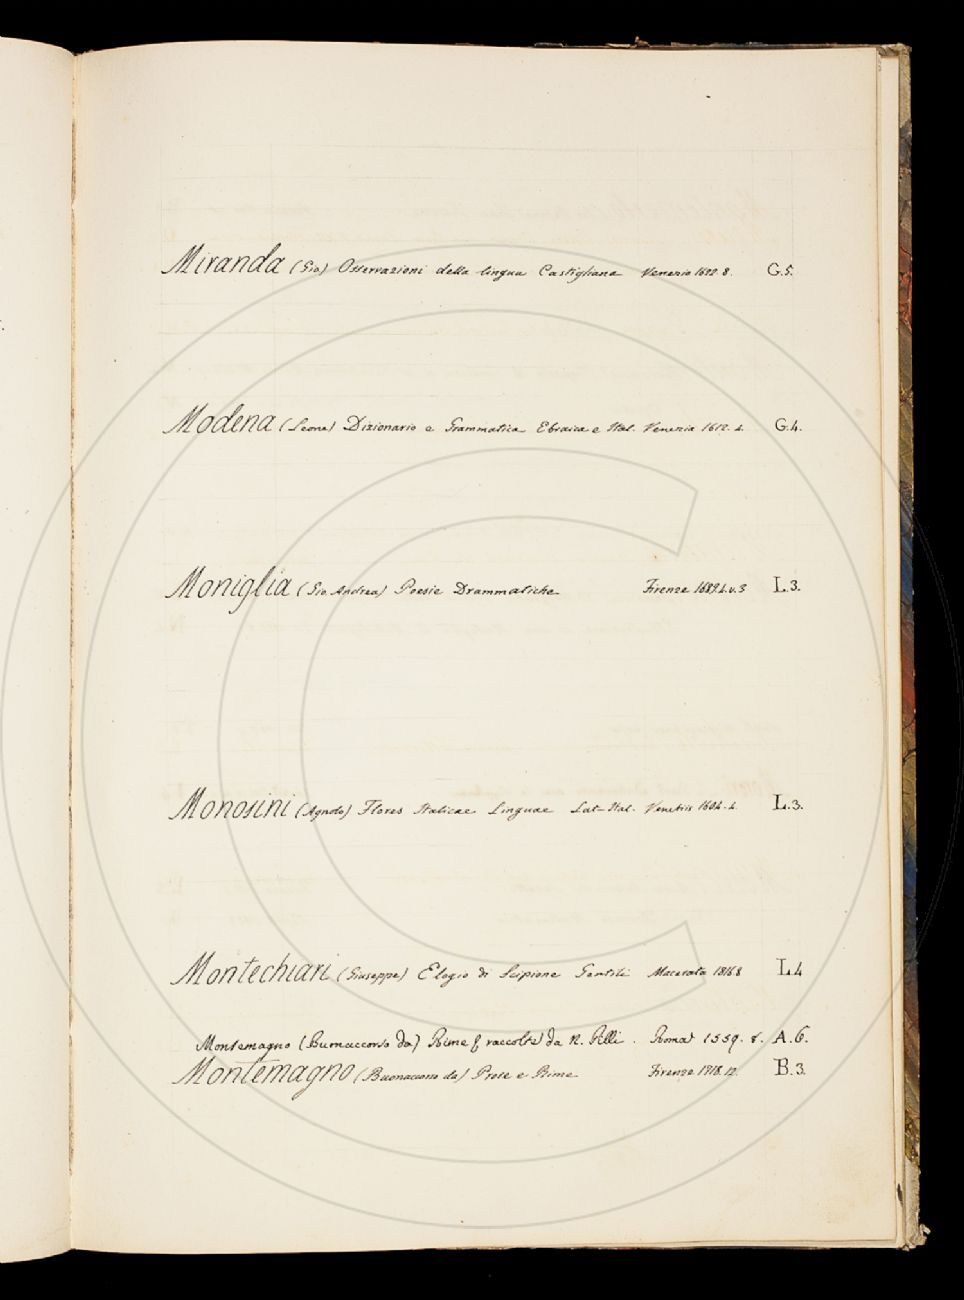 Miranda (Gio) Osservazioni della lingua Castigliana Venezia 1612. 8. G.5.
Modena (Leone) Dizionario e Grammatica Ebraica e Ital. Venezia 1612. 4. G.4.
Moniglia (Gio. Andrea) Poesie Drammatiche Firenze 1689.4.v.3 L.3.
Monosini (Agnolo) Flores Italicae Linguae Lat-Ital. Venetiis 1604. 4. L.3.
Montechiari (Giuseppe) Elogio di Scipione Gentili Macerata 1816 8 L.4
Montemagno (Buonaccorso da) Rime raccolte da N. Pilli. Roma 1559. 8. A.6.
Montemagno (Buonaccorso da) Prose e Rime Firenze 1718.12. B.3.